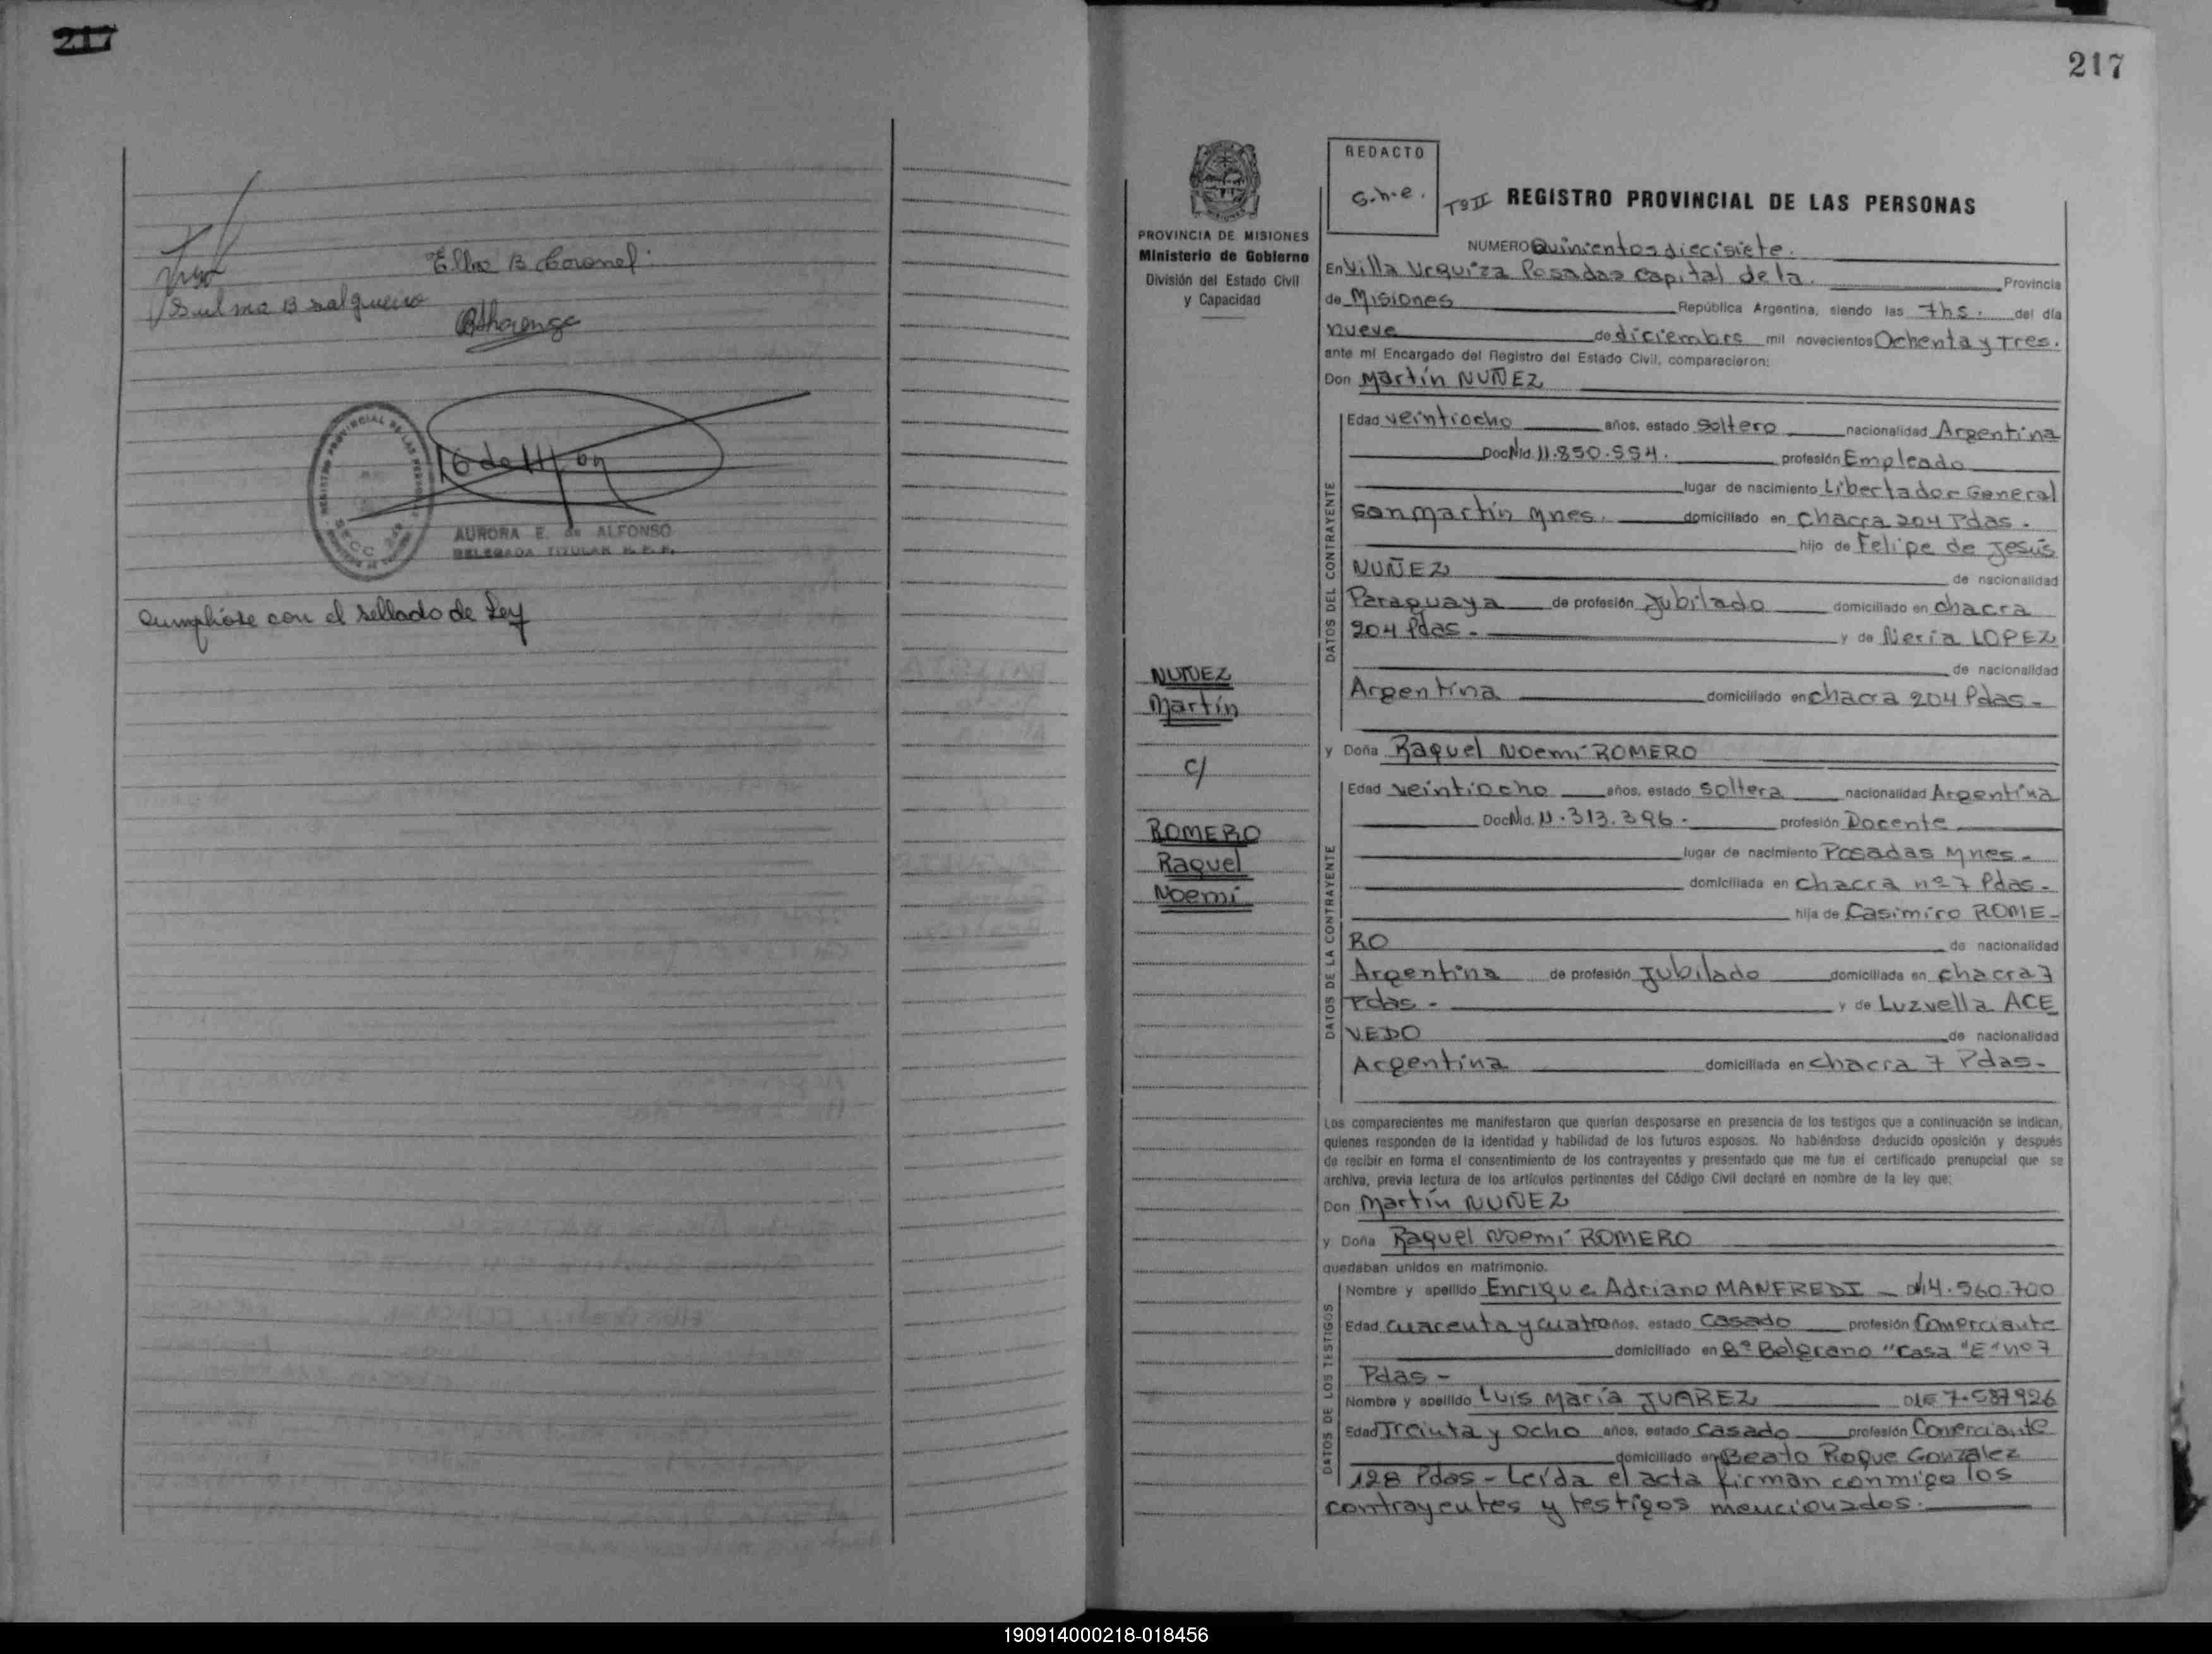 217
Elba B Coronel
Sulma B Salgueiro
REGISTRO PROVINCIAL DE LAS PERSONAS
SECC
AURORA E. de ALFONSO
DELEGADA TITULAR R.P.P.
Cumpliose con el sellado de Ley
217
PROVINCIA DE MISIONES
Ministerio de Gobierno
División del Estado Civil
y Capacidad
NUÑEZ
Martín
c/
ROMERO
Raquel
Noemí
REDACTO
G.h.e.
Tº II REGISTRO PROVINCIAL DE LAS PERSONAS
NUMERO Quinientos diecisiete.
En Villa Urquiza Posadas Capital de la Provincia
de Misiones República Argentina, siendo las 7hs. del día
nueve de diciembre mil novecientos Ochenta y Tres.
ante mí Encargado del Registro del Estado Civil, comparecieron:
Don Martín NUÑEZ
DATOS DEL CONTRAYENTE
Edad veintiocho años, estado soltero nacionalidad Argentina
Doc Nid. 11.850.554. profesión Empleado
lugar de nacimiento Libertador General
San Martín Mnes. domiciliado en Chacra 204 Pdas.
hijo de Felipe de Jesús
NUÑEZ de nacionalidad
Paraguaya de profesión Jubilado domiciliado en chacra
204 Pdas. y de Neria LOPEZ
de nacionalidad
Argentina domiciliado en chacra 204 Pdas.
y Doña Raquel Noemí ROMERO
DATOS DE LA CONTRAYENTE
Edad veintiocho años, estado soltera nacionalidad Argentina
Doc Nid. 11.313.396. profesión Docente
lugar de nacimiento Posadas Mnes.
domiciliada en chacra nº 7 Pdas.
hija de Casimiro ROME-
RO de nacionalidad
Argentina de profesión Jubilado domiciliada en chacra 7
Pdas. y de Luzvella ACE
VEDO de nacionalidad
Argentina domiciliada en chacra 7 Pdas.
Los comparecientes me manifestaron que querían desposarse en presencia de los testigos que a continuación se indican,
quienes responden de la identidad y habilidad de los futuros esposos. No habiéndose deducido oposición y después
de recibir en forma el consentimiento de los contrayentes y presentado que me fue el certificado prenupcial que se
archiva, previa lectura de los artículos pertinentes del Código Civil declaré en nombre de la ley que:
Don Martín NUÑEZ
y Doña Raquel Noemí ROMERO
quedaban unidos en matrimonio.
DATOS DE LOS TESTIGOS
Nombre y apellido Enrique Adriano MANFREDI 4.560.700
Edad cuarenta y cuatro años, estado Casado profesión Comerciante
domiciliado en Bº Belgrano "Casa "E" nº 7
Pdas -
Nombre y apellido Luis María JUAREZ 7.587926
Edad Treinta y Ocho años, estado Casado profesión Comerciante
domiciliado en Beato Roque González
128 Pdas - Leída el acta firman conmigo los
contrayentes y testigos mencionados.
190914000218-018456